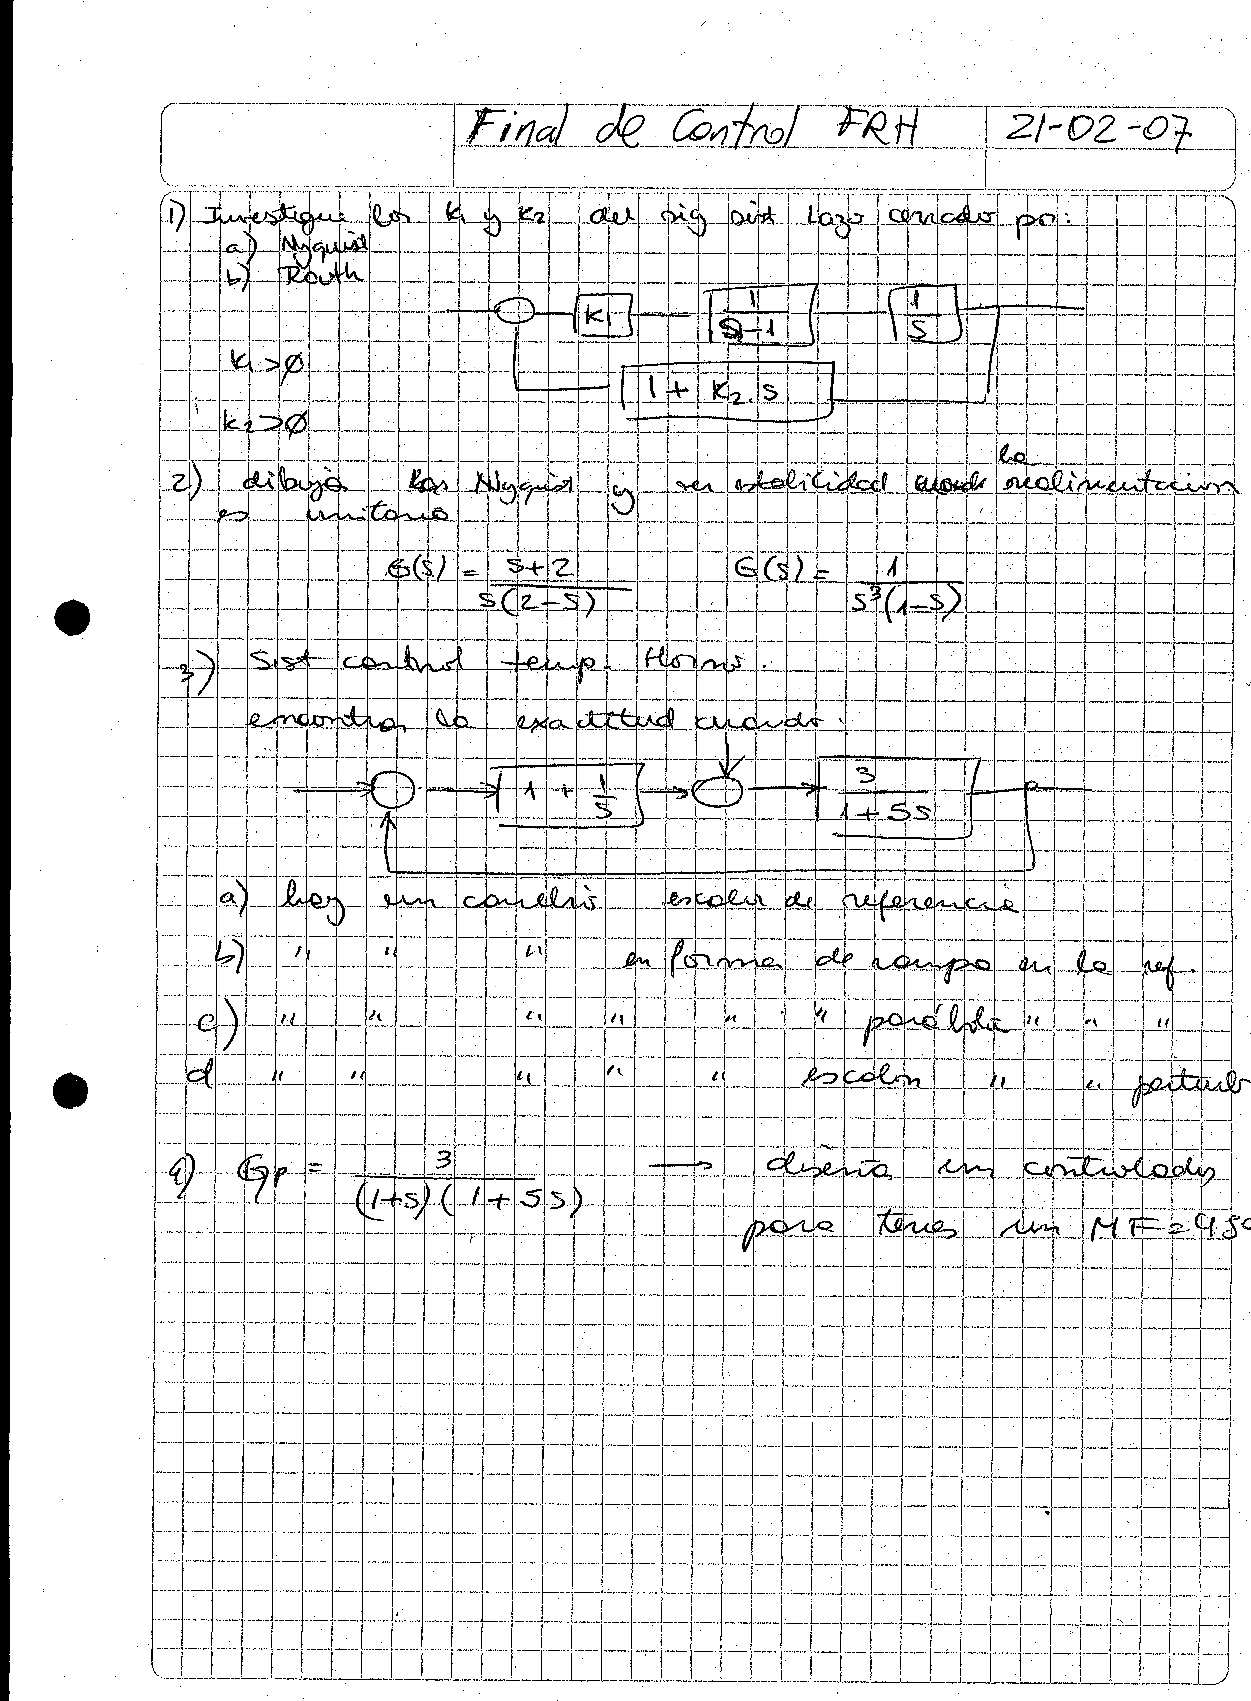 Final de Control FRH 21-02-07
1) Investigue los k1 y k2 del sig sist lazo cerrado por:
a) Nyquist
b) Routh
k1
1
s-1
1
s
k1>0
1 + k2.s
k2>0
2) dibuja los Nyquist y ver estabilidad cuando la realimentacion
es unitaria
G(s) = s+2
s(2-s)
G(s) = 1
s³(1-s)
3) Sist control temp. Horno.
encontrar la exactitud cuando:
1 + 1
s
3
1+5s
a) hay un cambio escalon de referencia
b) " " " en forma de rampa en la ref.
c) " " " " " " parábola " " "
d " " " " " escalón " " perturb
4) Gp = 3
(1+s)(1+5s)
→ diseña un controlador
para tener un MF=45°